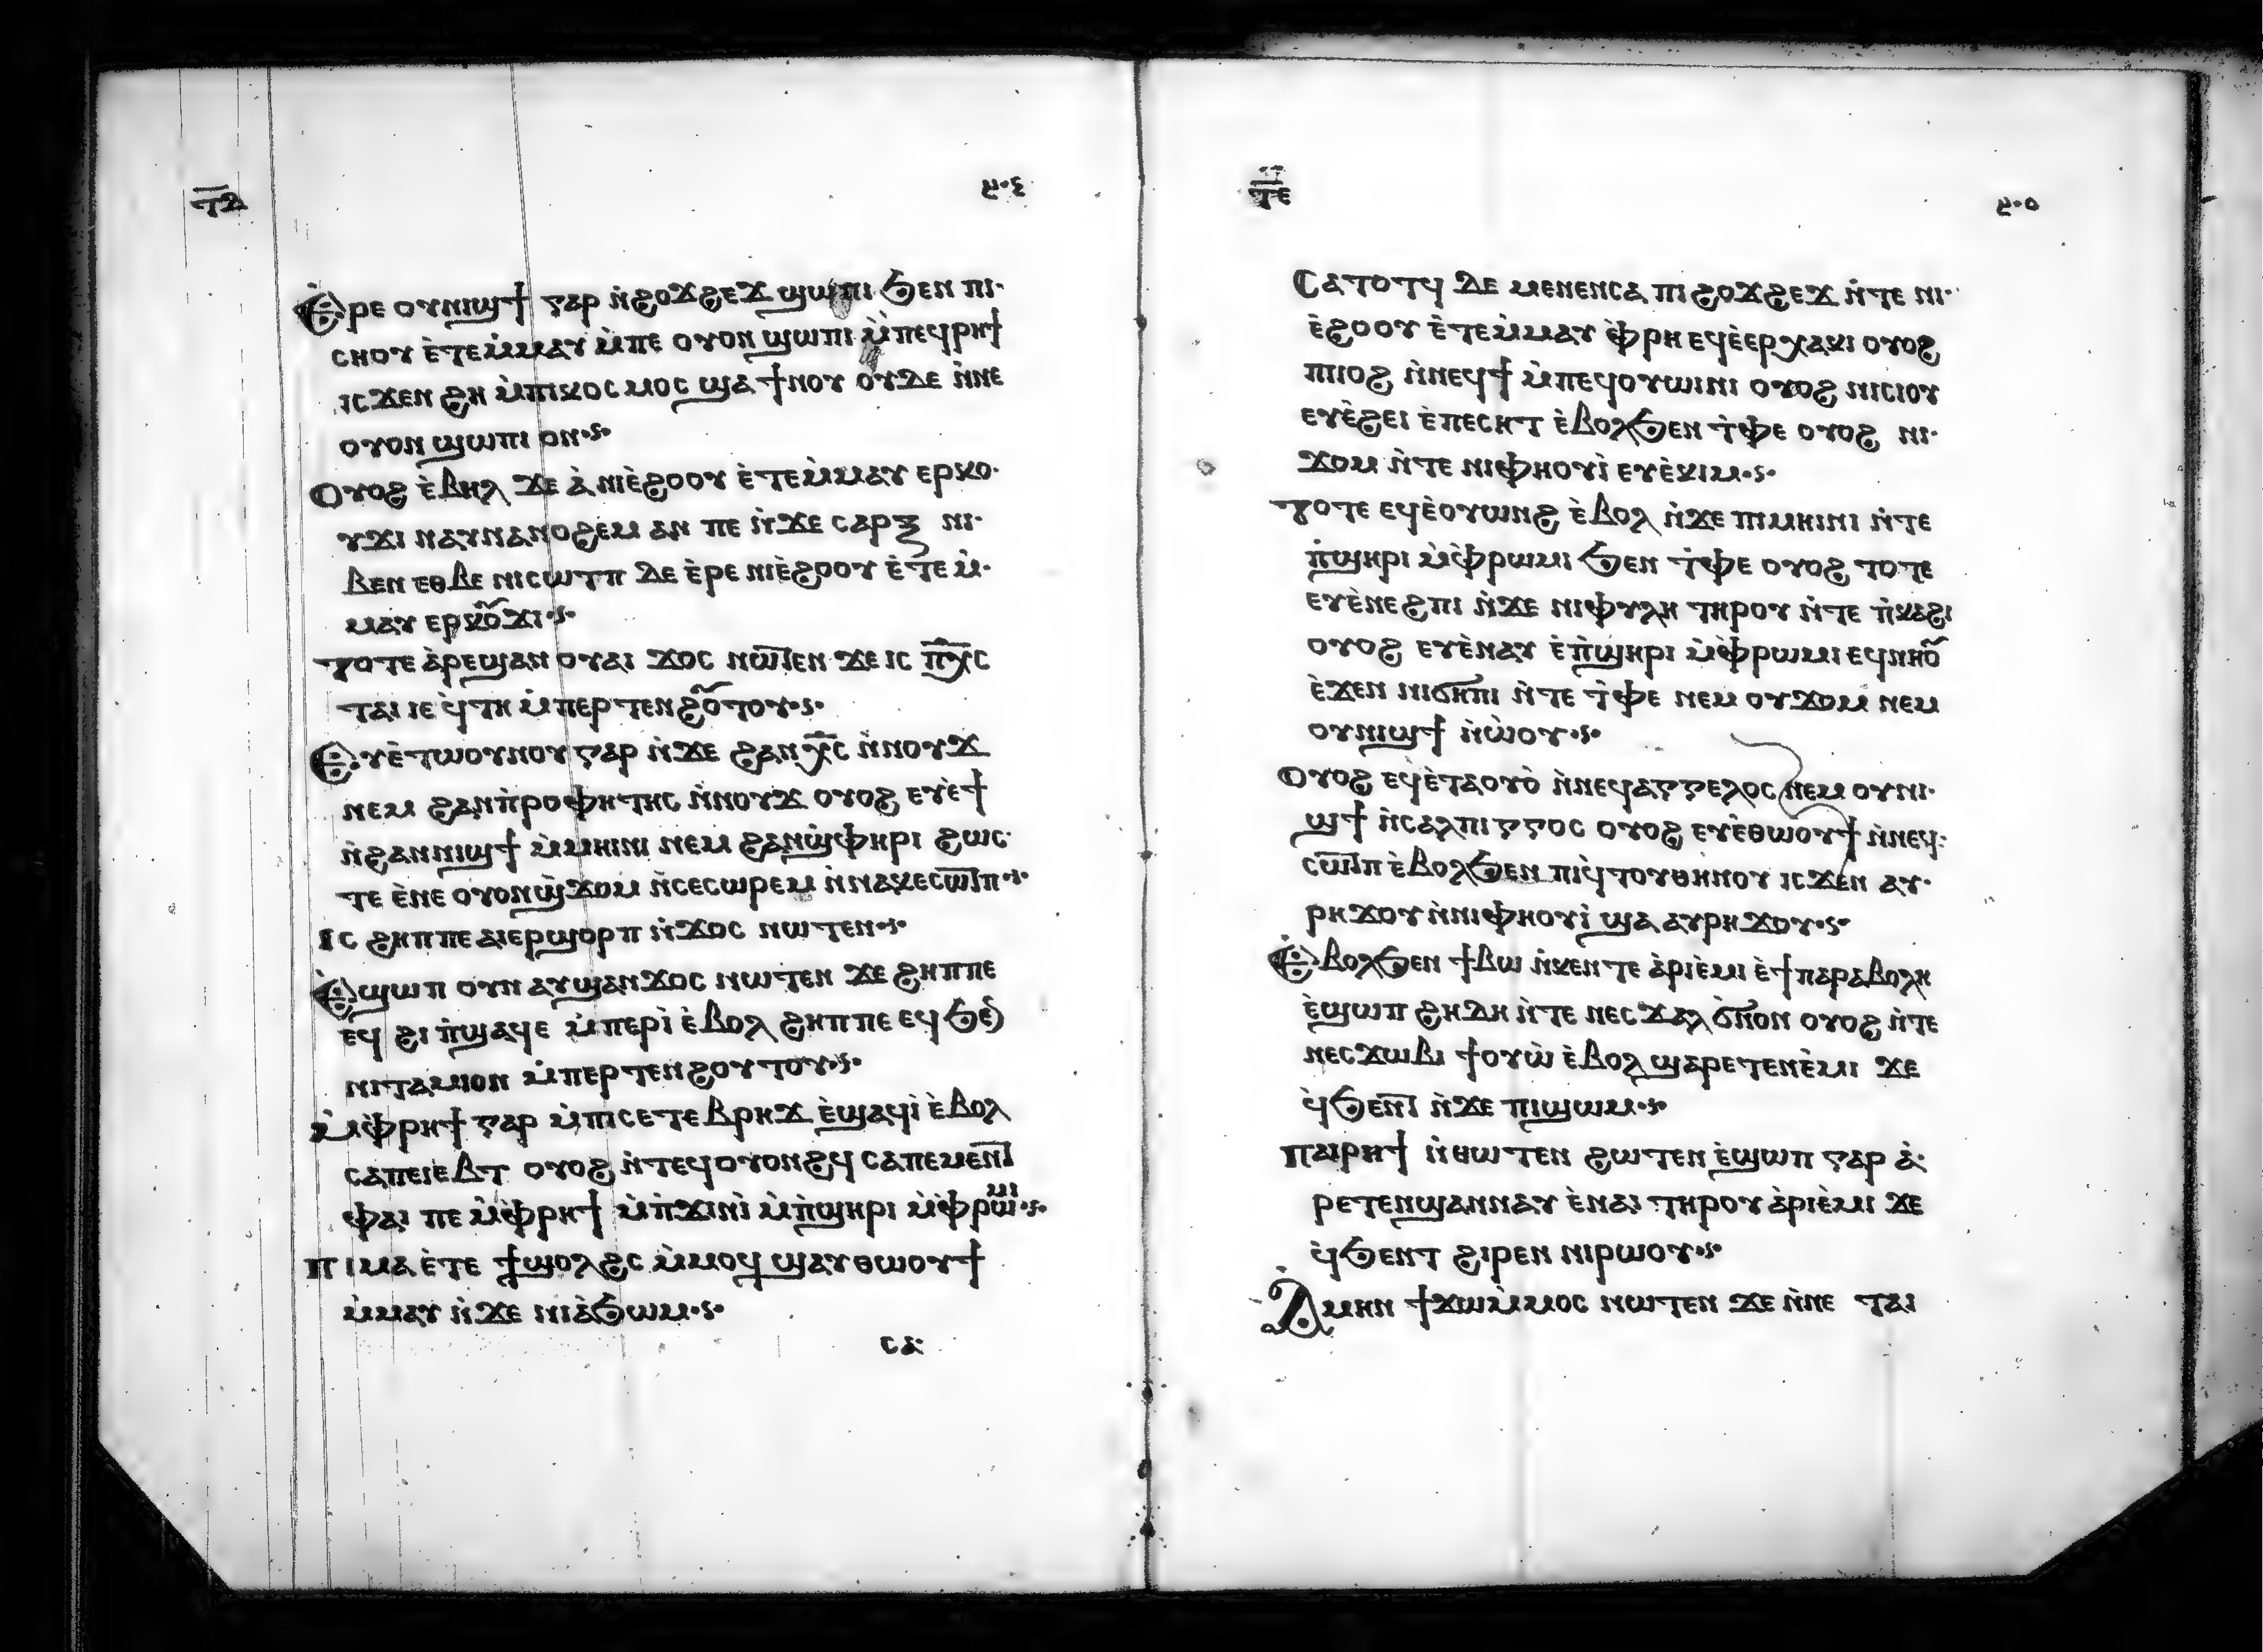 ⲧⲇ ϥ·ⲝ
Ⲉⲣⲉ ⲟⲩⲛⲓϣϯ ⲅⲁⲣ ⲛ̀ϩⲟϫϩⲉϫ ϣⲱⲡⲓ ϧⲉⲛ ⲡⲓ·
ⲥⲛⲟⲩ ⲉ̀ⲧⲉⲙ̀ⲙⲁⲩ ⲙ̀ⲡⲉ ⲟⲩⲟⲛ ϣⲱⲡⲓ ⲙ̀ⲡⲉϥⲣⲏϯ
ⲓⲥϫⲉⲛ ϩⲏ ⲙ̀ⲡⲓⲕⲟⲥⲙⲟⲥ ϣⲁ ϯⲛⲟⲩ ⲟⲩⲇⲉ ⲛ̀ⲛⲉ
ⲟⲩⲟⲛ ϣⲱⲡⲓ ⲟⲛ·ⲋ·
Ⲟⲩⲟϩ ⲉ̀ⲃⲏⲗ ϫⲉ ⲁ̀ ⲛⲓⲉ̀ϩⲟⲟⲩ ⲉ̀ⲧⲉⲙ̀ⲙⲁⲩ ⲉⲣⲕⲟ·
ⲩϫⲓ ⲛⲁⲩⲛⲁⲛⲟϩⲉⲙ ⲁⲛ ⲡⲉ ⲛ̀ϫⲉ ⲥⲁⲣⲝ ⲛⲓ·
ⲃⲉⲛ ⲉⲑⲃⲉ ⲛⲓⲥⲱⲧⲡ ⲇⲉ ⲉ̀ⲣⲉ ⲛⲓⲉ̀ϩⲟⲟⲩ ⲉ̀ⲧⲉⲙ̀·
ⲙⲁⲩ ⲉⲣⲕⲟ̃ϫⲓ·ⲋ·
Ⲧⲟⲧⲉ ⲁ̀ⲣⲉϣⲁⲛ ⲟⲩⲁⲓ ϫⲟⲥ ⲛⲱⲧⲉⲛ ϫⲉ ⲓⲥ ⲡ̅ⲭ̅ⲥ
ⲧⲁⲓ ⲓⲉ ϥ̀ⲧⲏ ⲙ̀ⲡⲉⲣⲧⲉⲛϩⲟ̃ⲧⲟⲩ·ⲋ·
Ⲉⲩⲉ̀ⲧⲱⲟⲩⲛⲟⲩ ⲅⲁⲣ ⲛ̀ϫⲉ ϩⲁⲛⲭ̅ⲥ ⲛ̀ⲛⲟⲩϫ
ⲛⲉⲙ ϩⲁⲛⲡ̀ⲣⲟⲫⲏⲧⲏⲥ ⲛ̀ⲛⲟⲩϫ ⲟⲩⲟϩ ⲉⲩⲉ̀ϯ
ⲛ̀ϩⲁⲛⲛⲓϣϯ ⲙ̀ⲙⲏⲓⲛⲓ ⲛⲉⲙ ϩⲁⲛϣ̀ⲫⲏⲣⲓ ϩⲱⲥ·
ⲧⲉ ⲉ̀ⲛⲉ ⲟⲩⲟⲛϣ̀ϫⲟⲙ ⲛ̀ⲥⲉⲥⲱⲣⲉⲙ ⲛ̀ⲛⲁⲕⲉⲥⲱⲧⲡ·ⲋ·
Ⲓⲥ ϩⲏⲡⲡⲉ ⲁⲓⲉⲣϣⲟⲣⲡ ⲛ̀ϫⲟⲥ ⲛⲱⲧⲉⲛ·ⲋ·
Ⲉ̀ϣⲱⲡ ⲟⲩⲛ ⲁⲩϣⲁⲛϫⲟⲥ ⲛⲱⲧⲉⲛ ϫⲉ ϩⲏⲡⲡⲉ
ⲉϥ ϩⲓ ⲡ̀ϣⲁϥⲉ ⲙ̀ⲡⲉⲣⲓ̀ ⲉ̀ⲃⲟⲗ ϩⲏⲡⲡⲉ ⲉϥϧⲉ̀
ⲛⲓⲧⲁⲙⲓⲟⲛ ⲙ̀ⲡⲉⲣⲧⲉⲛϩⲟⲩⲧⲟⲩ·ⲋ·
Ⲙ̀ⲫ̀ⲣⲏϯ ⲅⲁⲣ ⲙ̀ⲡⲓⲥⲉⲧⲉⲃⲣⲏϫ ⲉ̀ϣⲁϥⲓ̀ ⲉ̀ⲃⲟⲗ
ⲥⲁⲡⲉⲓⲉⲃⲧ ⲟⲩⲟϩ ⲛ̀ⲧⲉϥⲟⲩⲟⲛϩϥ ⲥⲁⲡⲉⲙⲉⲛⲧ
ⲫⲁⲓ ⲡⲉ ⲙ̀ⲫ̀ⲣⲏϯ ⲙ̀ⲡ̀ϫⲓⲛⲓ̀ ⲙ̀ⲡ̀ϣⲏⲣⲓ ⲙ̀ⲫ̀ⲣⲱⲙⲓ·ⲋ·
Ⲡⲓⲙⲁ ⲉ̀ⲧⲉ ϯϣⲟⲗϩⲥ ⲙ̀ⲙⲟϥ ϣⲁⲩⲑⲱⲟⲩϯ
ⲙ̀ⲙⲁⲩ ⲛ̀ϫⲉ ⲛⲓⲁ̀ϧⲱⲙ·ⲋ·
ⲥⲁ·
ⲧⲉ ϥ·ⲟ
Ⲥⲁⲧⲟⲧϥ ⲇⲉ ⲙⲉⲛⲉⲛⲥⲁ ⲡⲓϩⲟϫϩⲉϫ ⲛ̀ⲧⲉ ⲛⲓ·
ⲉ̀ϩⲟⲟⲩ ⲉ̀ⲧⲉⲙ̀ⲙⲁⲩ ⲫ̀ⲣⲏ ⲉϥⲉ̀ⲉⲣⲭⲁⲕⲓ ⲟⲩⲟϩ
ⲡⲓⲓⲟϩ ⲛ̀ⲛⲉϥϯ ⲙ̀ⲡⲉϥⲟⲩⲱⲓⲛⲓ ⲟⲩⲟϩ ⲛⲓⲥⲓⲟⲩ
ⲉⲩⲉ̀ϩⲉⲓ ⲉ̀ⲡⲉⲥⲏⲧ ⲉ̀ⲃⲟⲗϧⲉⲛ ⲧ̀ⲫⲉ ⲟⲩⲟϩ ⲛⲓ·
ϫⲟⲙ ⲛ̀ⲧⲉ ⲛⲓⲫⲏⲟⲩⲓ̀ ⲉⲩⲉ̀ⲕⲓⲙ·ⲋ·
Ⲧⲟⲧⲉ ⲉϥⲉ̀ⲟⲩⲱⲛϩ ⲉ̀ⲃⲟⲗ ⲛ̀ϫⲉ ⲡⲓⲙⲏⲓⲛⲓ ⲛ̀ⲧⲉ
ⲡ̀ϣⲏⲣⲓ ⲙ̀ⲫ̀ⲣⲱⲙⲓ ϧⲉⲛ ⲧ̀ⲫⲉ ⲟⲩⲟϩ ⲧⲟⲧⲉ
ⲉⲩⲉ̀ⲛⲉϩⲡⲓ ⲛ̀ϫⲉ ⲛⲓⲫⲩⲗⲏ ⲧⲏⲣⲟⲩ ⲛ̀ⲧⲉ ⲡ̀ⲕⲁϩⲓ
ⲟⲩⲟϩ ⲉⲩⲉ̀ⲛⲁⲩ ⲉ̀ⲡ̀ϣⲏⲣⲓ ⲙ̀ⲫ̀ⲣⲱⲙⲓ ⲉϥⲛⲏⲟ̃
ⲉ̀ϫⲉⲛ ⲛⲓϭⲏⲡⲓ ⲛ̀ⲧⲉ ⲧ̀ⲫⲉ ⲛⲉⲙ ⲟⲩϫⲟⲙ ⲛⲉⲙ
ⲟⲩⲛⲓϣϯ ⲛ̀ⲱ̀ⲟⲩ·ⲋ·
Ⲟⲩⲟϩ ⲉϥⲉ̀ⲧⲁⲟⲩⲟ̀ ⲛ̀ⲛⲉϥⲁⲅⲅⲉⲗⲟⲥ ⲛⲉⲙ ⲟⲩⲛⲓ·
ϣϯ ⲛ̀ⲥⲁⲗⲡⲓⲅⲅⲟⲥ ⲟⲩⲟϩ ⲉⲩⲉ̀ⲑⲱⲟⲩϯ ⲛ̀ⲛⲉϥ·
ⲥⲱⲧⲡ ⲉ̀ⲃⲟⲗϧⲉⲛ ⲡⲓϥ̀ⲧⲟⲩⲑⲏⲛⲟⲩ ⲓⲥϫⲉⲛ ⲁⲩ·
ⲣⲏϫⲟⲩ ⲛ̀ⲛⲓⲫⲏⲟⲩⲓ̀ ϣⲁ ⲁⲩⲣⲏϫⲟⲩ·ⲋ·
Ⲉ̀ⲃⲟⲗϧⲉⲛ ϯⲃⲱ ⲛ̀ⲕⲉⲛⲧⲉ ⲁ̀ⲣⲓⲉ̀ⲙⲓ ⲉ̀ϯⲡⲁⲣⲁⲃⲟⲗⲏ
ⲉ̀ϣⲱⲡ ϩⲏⲇⲏ ⲛ̀ⲧⲉ ⲛⲉⲥϫⲁⲗ ϭⲛⲟⲛ ⲟⲩⲟϩ ⲛ̀ⲧⲉ
ⲛⲉⲥϫⲱⲃⲓ ϯⲟⲩⲱ̀ ⲉ̀ⲃⲟⲗ ϣⲁⲣⲉⲧⲉⲛⲉ̀ⲙⲓ ϫⲉ
ϥ̀ϧⲉⲛⲧ ⲛ̀ϫⲉ ⲡⲓϣⲱⲙ·ⲋ·
Ⲡⲁⲓⲣⲏϯ ⲛ̀ⲑⲱⲧⲉⲛ ϩⲱⲧⲉⲛ ⲉ̀ϣⲱⲡ ⲅⲁⲣ ⲁ̀·
ⲣⲉⲧⲉⲛϣⲁⲛⲛⲁⲩ ⲉ̀ⲛⲁⲓ ⲧⲏⲣⲟⲩ ⲁ̀ⲣⲓⲉ̀ⲙⲓ ϫⲉ
ϥ̀ϧⲉⲛⲧ ϩⲓⲣⲉⲛ ⲛⲓⲣⲱⲟⲩ·ⲋ·
Ⲁⲙⲏⲛ ϯϫⲱⲙ̀ⲙⲟⲥ ⲛⲱⲧⲉⲛ ϫⲉ ⲛ̀ⲛⲉ ⲧⲁⲓ